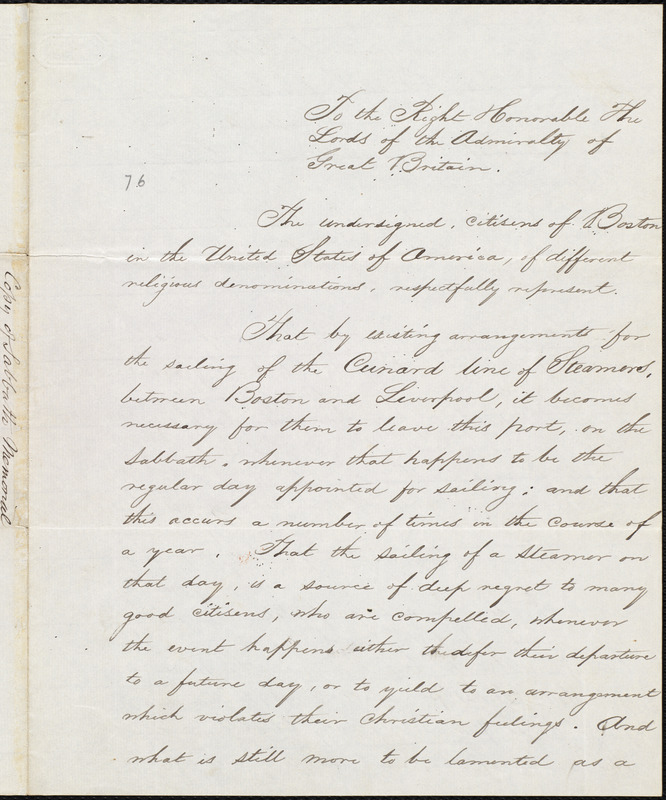 To the Right Honorable The
Lords of the Admiralty of
Great Britain.
76
The undersigned, citizens of Boston
in the United States of America, of different
religious denominations, respectfully represent.
That by existing arrangements for
the sailing of the Cunard line of Steamers,
between Boston and Liverpool, it becomes
necessary for them to leave this port, on the
Sabbath, whenever that happens to be the
regular day appointed for sailing; and that
this occurs a number of times in the course of
a year. That the sailing of a steamer on
that day, is a source of deep regret to many
good citizens, who are compelled, whenever
the event happens either to defer their departure
to a future day, or to yield to an arrangement
which violates their Christian feelings. And
what is still more to be lamented as a
Copy of Sabbath Memorial